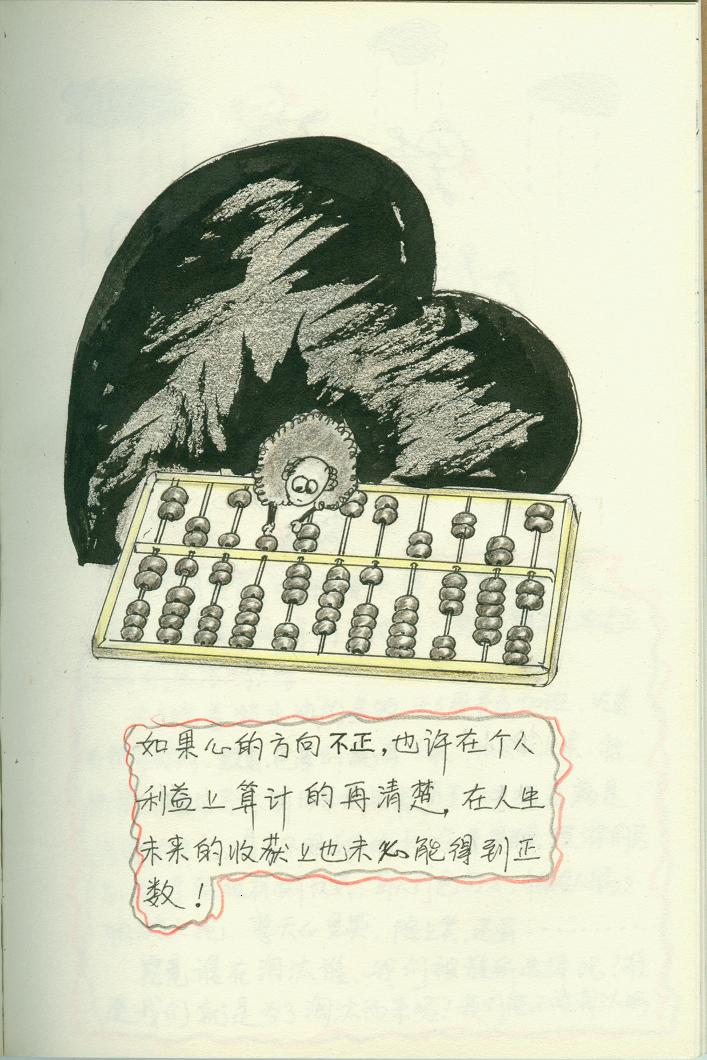 如果心的方向不正,也许在个人
利益上算计的再清楚,在人生
未来的收获上也未必能得到正
数!